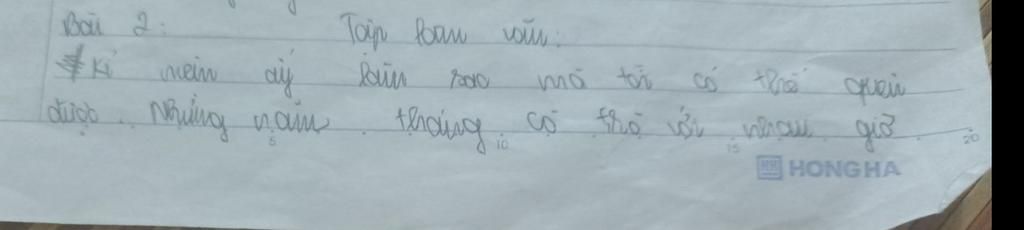 Bài 2: Tập làm văn:
Kỉ niệm ấy làm sao mà tôi có thể quên
được. Những năm tháng có thể với nhau giờ
5 10 15 20
HONG HA